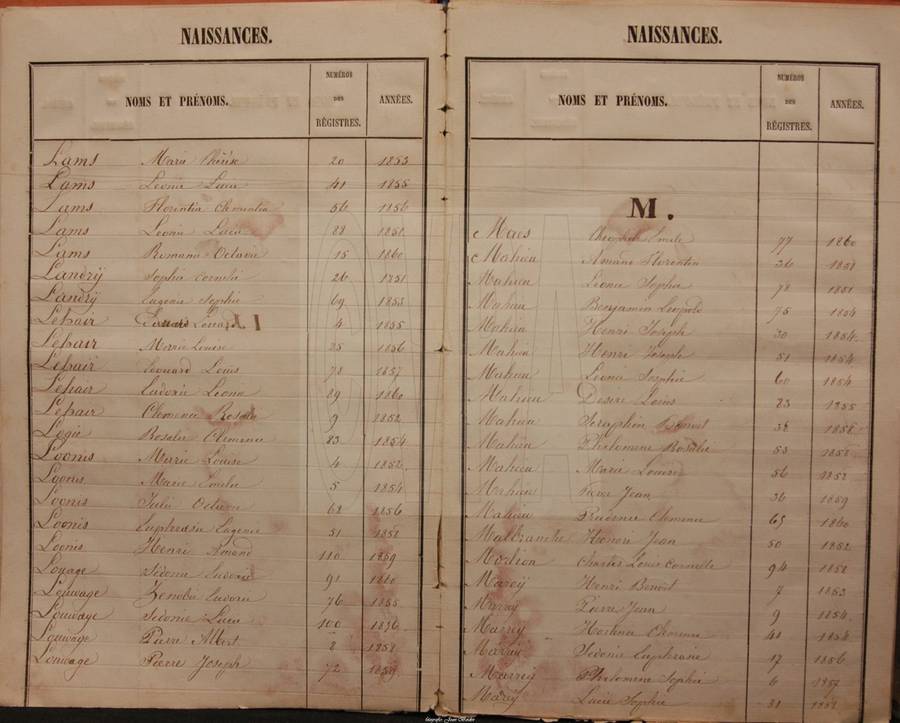 NAISSANCES.
NOMS ET PRÉNOMS. NUMÉROS DES RÉGISTRES. ANNÉES.
Lams Marie Thérèse 20 1853
Lams Leonie Lucie 41 1855
Lams Florentin Clementin 56 1856
Lams Leonie Lucie 1851
Lams Romanie Octavie 15 1860
Landrÿ Sophie Cornelie 26 1851
Landrÿ Eugenie Sophie 69 1853
Lepair Edouard 4 1855
Lepair Marie Louise 25 1856
Lepair Edouard Louis 78 1857
Lepair Eudoxie Leonie 89 1860
Lepair Clemence Rosalie 9 1852
Logie Rosalie Clemence 83 1854
Loonis Marie Louise 4 1852
Loonis Marie Emelie 5 1854
Loonis Julie Octavie 68 1856
Loonis Euphrasie Eugenie 51 1858
Loonis Henri Amand 110 1859
Louage Sidonie Eudoxie 91 1860
Louwage Zenobie Eudoxie 76 1855
Louwage Sidonie Lucie 100 1856
Louwage Pierre Albert 8 1858
Louwage Pierre Joseph 72 1859
NAISSANCES.
NOMS ET PRÉNOMS. NUMÉROS DES RÉGISTRES. ANNÉES.
M.
Maes Theophile Emile 77 1860
Mahieu Amand Florentin 36 1851
Mahieu Leonie Sophie 78 1851
Mahieu Benjamin Leopold 75 1854
Mahieu Henri Joseph 30 1854
Mahieu Henri Joseph 51 1854
Mahieu Leonie Sophie 60 1854
Mahieu Desiré Louis 83 1855
Mahieu Seraphin Benoit 38 1858
Mahieu Philomene Rosalie 53 1858
Mahieu Marie Louise 56 1852
Mahieu Pierre Jean 36 1859
Mahieu Prudence Clemence 65 1860
Malbranke Honoré Jean 50 1852
Charles Louis Corneille 94 1858
Mareÿ Henri Benoit 7 1853
Mareÿ Pierre Jean 9 1854
Marreÿ Hortence Clemence 41 1854
Sidonie 17 1856
Marreÿ Philomene Sophie 6 1857
Mareÿ Lucie Sophie 31 1858